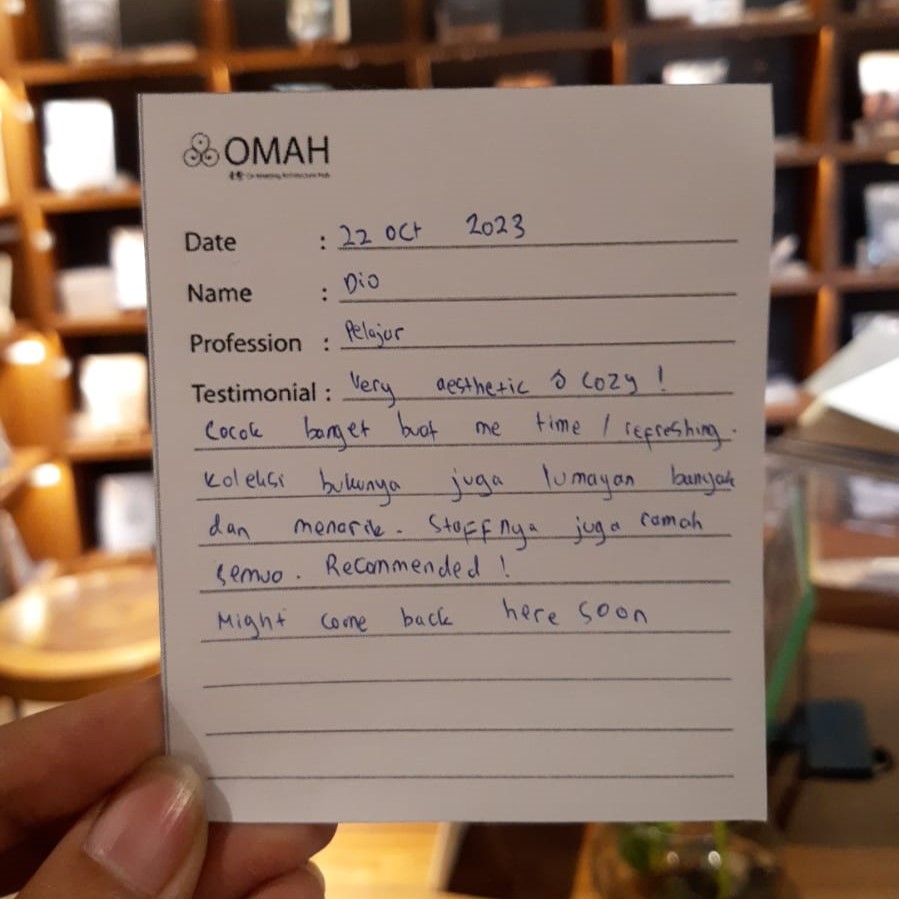 OMAH
Date : 22 Oct 2023
Name : Dio
Profession : Pelajar
Testimonial : Very aesthetic & cozy !
Cocok banget buat me time / refreshing.
Koleksi bukunya juga lumayan banyak
dan menarik. Staffnya juga ramah
semua. Recommended !
Might come back here soon